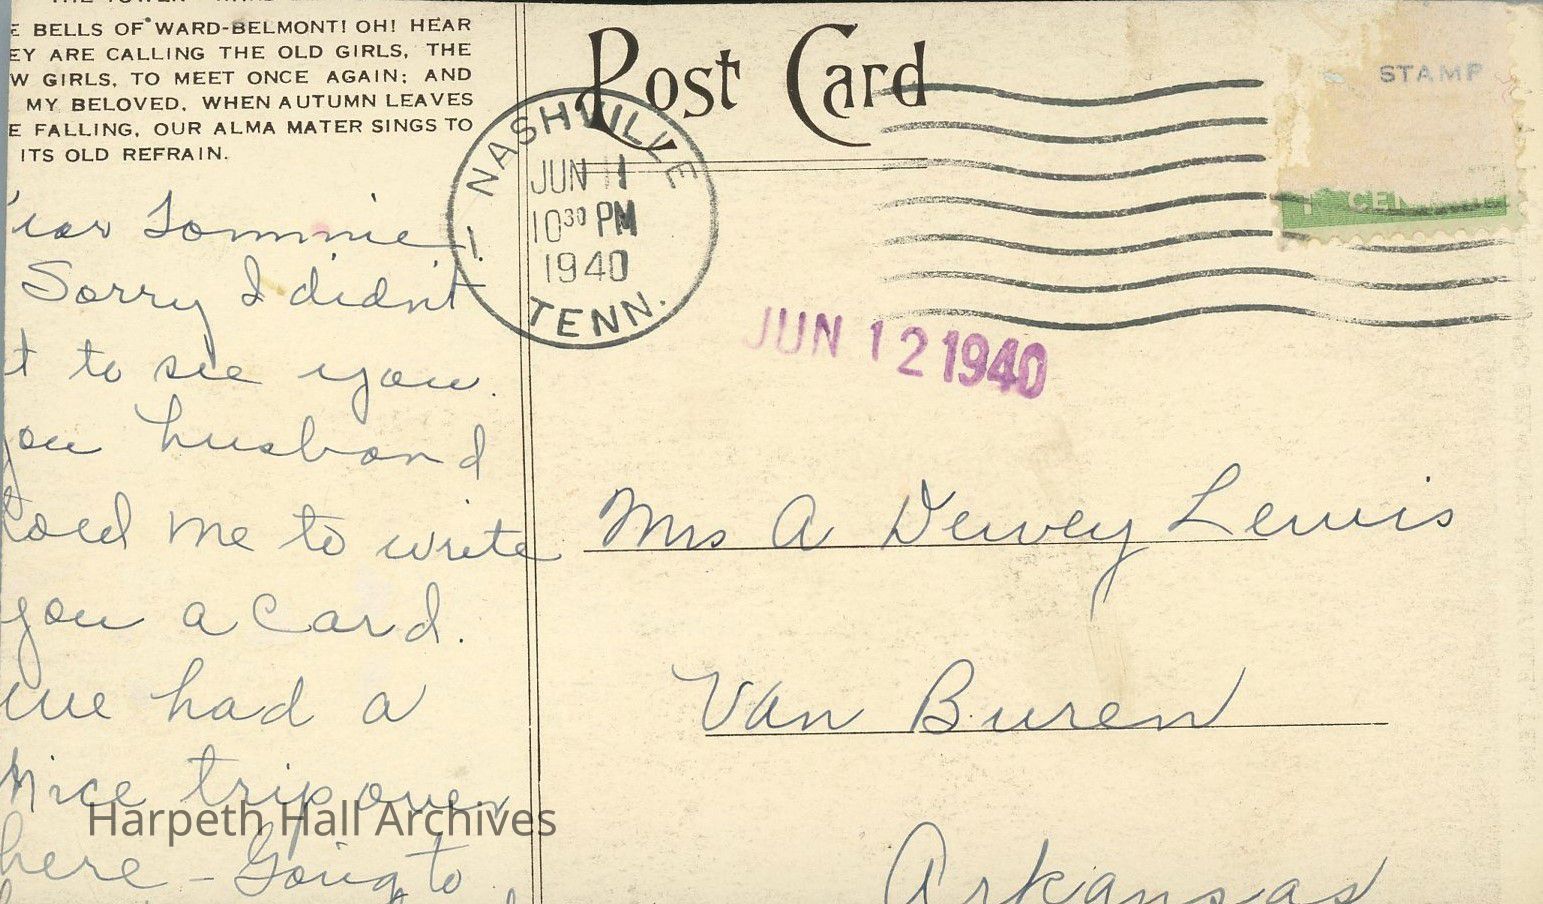 E BELLS OF WARD-BELMONT! OH! HEAR
EY ARE CALLING THE OLD GIRLS, THE
W GIRLS, TO MEET ONCE AGAIN; AND
MY BELOVED, WHEN AUTUMN LEAVES
E FALLING, OUR ALMA MATER SINGS TO
ITS OLD REFRAIN.
ear Tommie
Sorry I didn't
t to see you.
you husband
toed me to write
you a card.
we had a
nice trip over
here - Going to
Post Card
NASHVILLE
JUN 11
10³⁰ PM
1940
TENN.
1
STAMP
1¢ CENT
JUN 12 1940
Mrs A Dewey Lewis
Van Buren
Arkansas
Harpeth Hall Archives